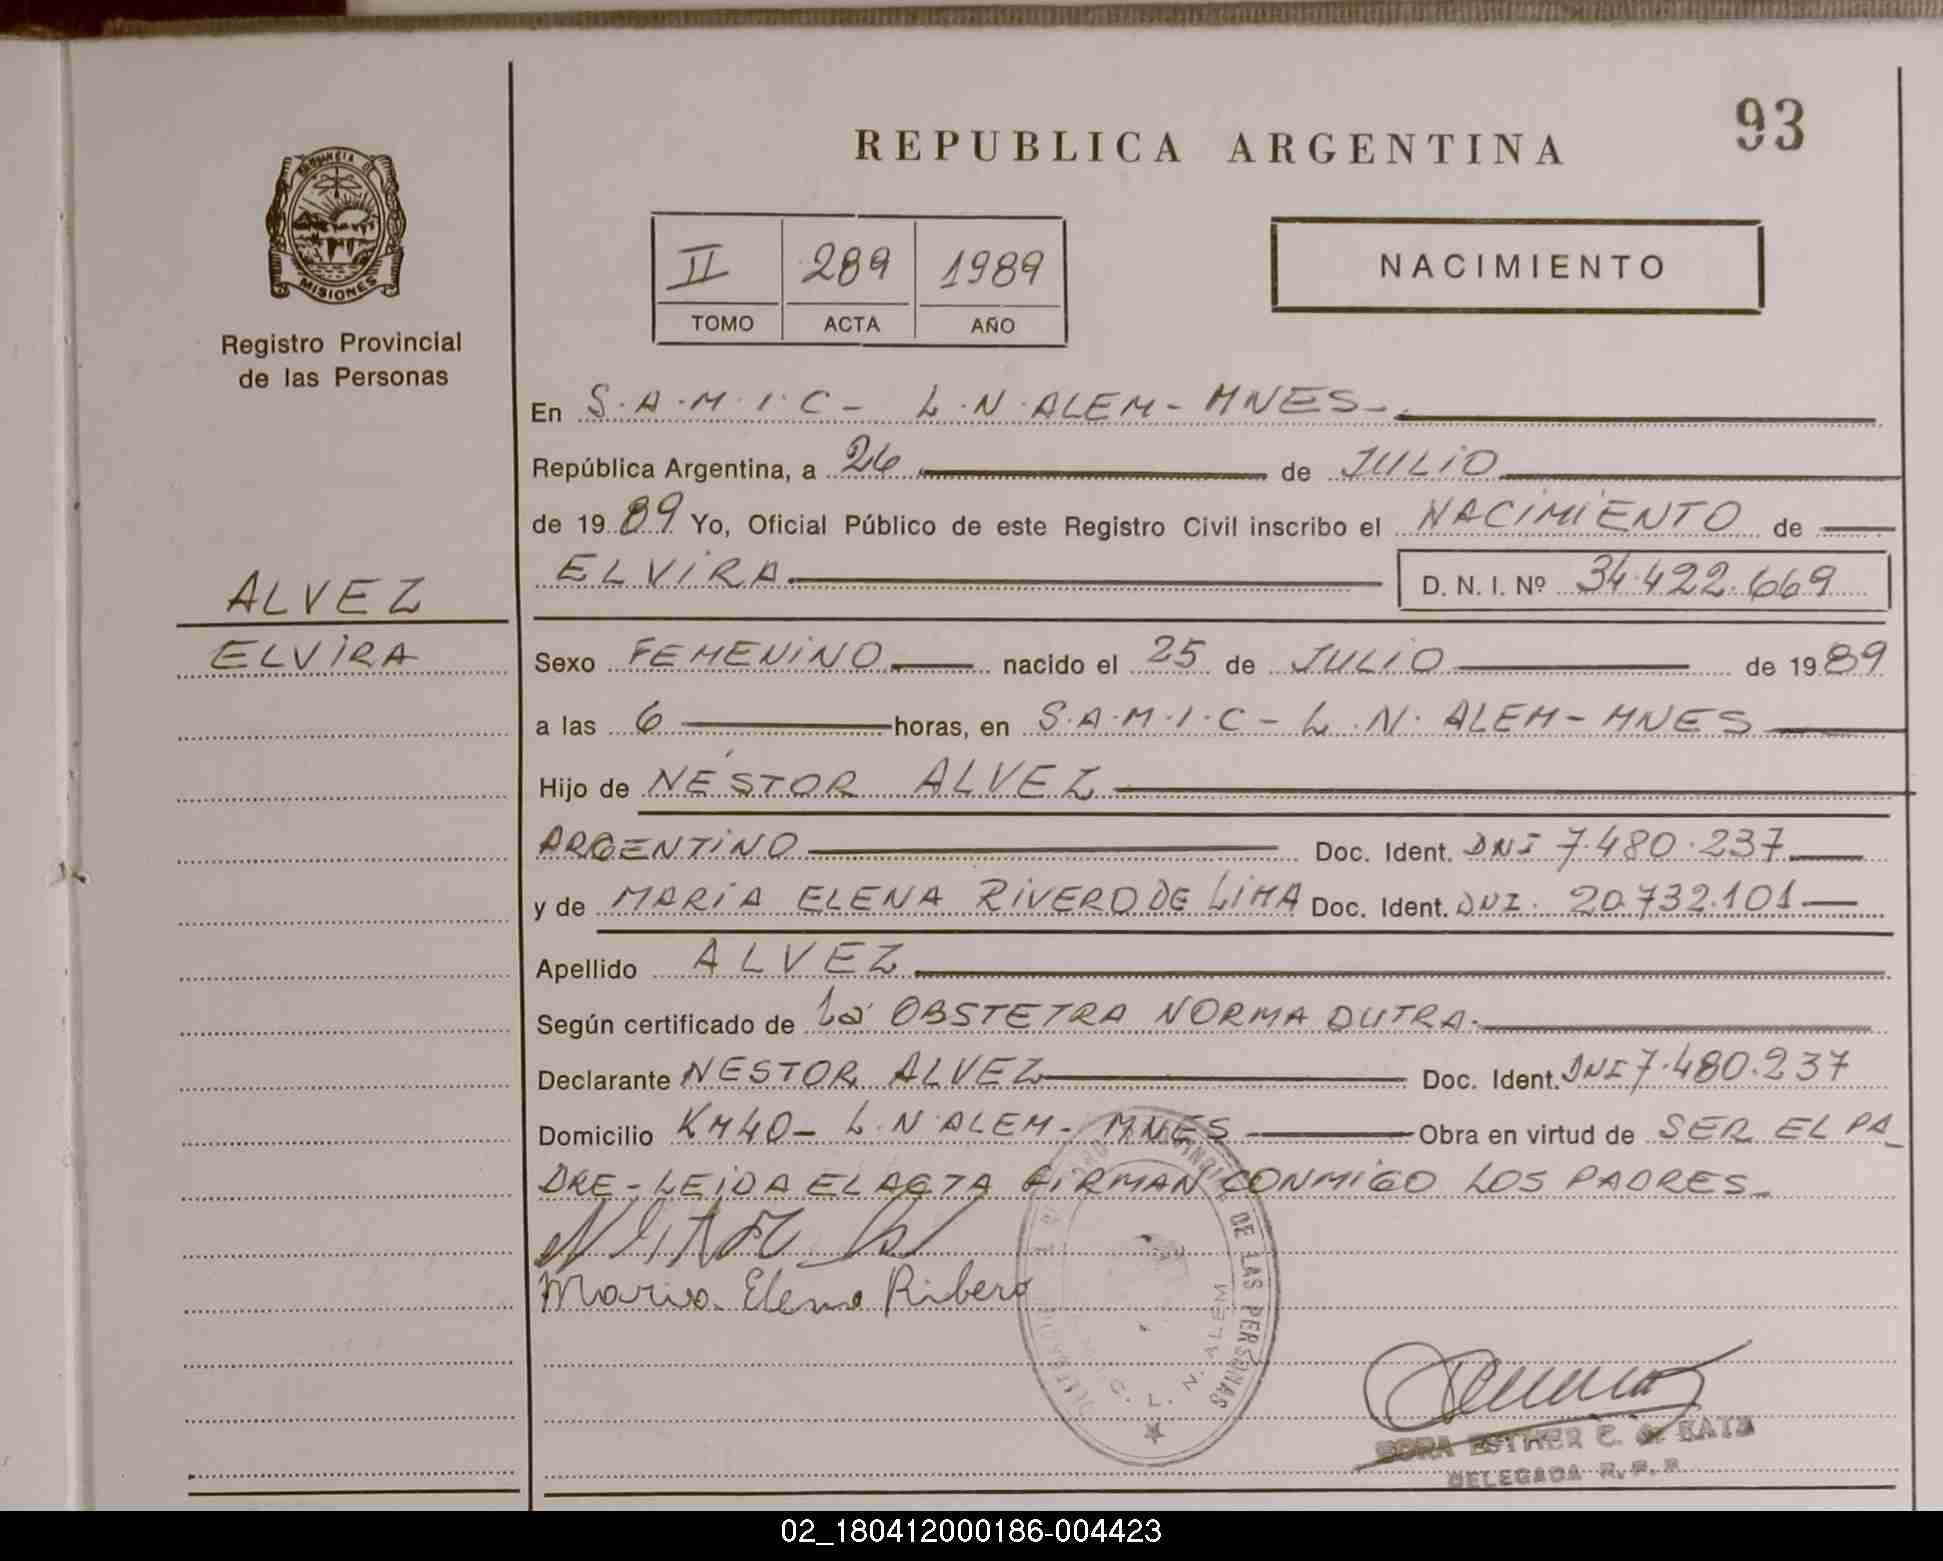 93
REPUBLICA ARGENTINA
MISIONES
Registro Provincial
de las Personas
II 289 1989
TOMO ACTA AÑO
NACIMIENTO
En S.A.M.I.C - L.N.ALEM - MNES -
República Argentina, a 26 de JULIO
de 1989 Yo, Oficial Público de este Registro Civil inscribo el NACIMIENTO de
ELVIRA D. N. I. Nº 34.422.669
ALVEZ
ELVIRA
Sexo FEMENINO nacido el 25 de JULIO de 1989
a las 6 horas, en S.A.M.I.C - L.N. ALEM - MNES
Hijo de NÉSTOR ALVEZ
ARGENTINO Doc. Ident. DNI 7.480.237
y de MARIA ELENA RIVERO DE LIMA Doc. Ident. DNI. 20.732.101
Apellido ALVEZ
Según certificado de la OBSTETRA NORMA DUTRA.
Declarante NESTOR ALVEZ Doc. Ident. DNI 7.480.237
Domicilio KM40 - L.N.ALEM - MNES Obra en virtud de SER EL PA_
DRE - LEIDA EL ACTA FIRMAN CONMIGO LOS PADRES_
Maria Elena Ribero
DE LAS PERSONAS
L. N. ALEM
ESTHER C.
DELEGADA R.P.P.
02_180412000186-004423